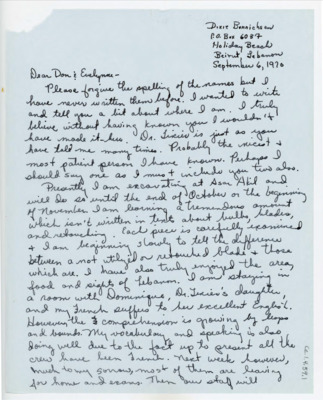 Dixie
P.O. Box 6087
Holiday Beach
Beirut, Lebanon
September 6, 1970
Dear Don & Evelynne-
Please forgive the spelling of the names but I
have never written them before. I wanted to write
and tell you a bit about where I am. I truly
believe without having known you I wouldn't
have made it here. Dr. is just as you
have told me many times. Probably the nicest &
most patient person I have known. Perhaps I
should say one as I must include you two also.
Presently I am excavating at Ksar Akil and
will do so until the end of October or the beginning
of November. I am learning a tremendous amount
which isn't written in texts about bulbs, blades,
and retouching. Each piece is carefully examined
& I am beginning slowly to tell the difference
between a not utilized or retouched blade & those
which are. I have also truly enjoyed the area,
food and sights of Lebanon. I am staying in
a room with Dominique, Dr. daughter
and my French suffices to her excellent English.
However, the comprehension is growing by leaps
and bounds. My vocabulary and speaking is also
doing well due to the fact up to present all the
crew have been French. Next week however,
much to my sorrow, most of them are leaving
for home and exams. Then our staff will